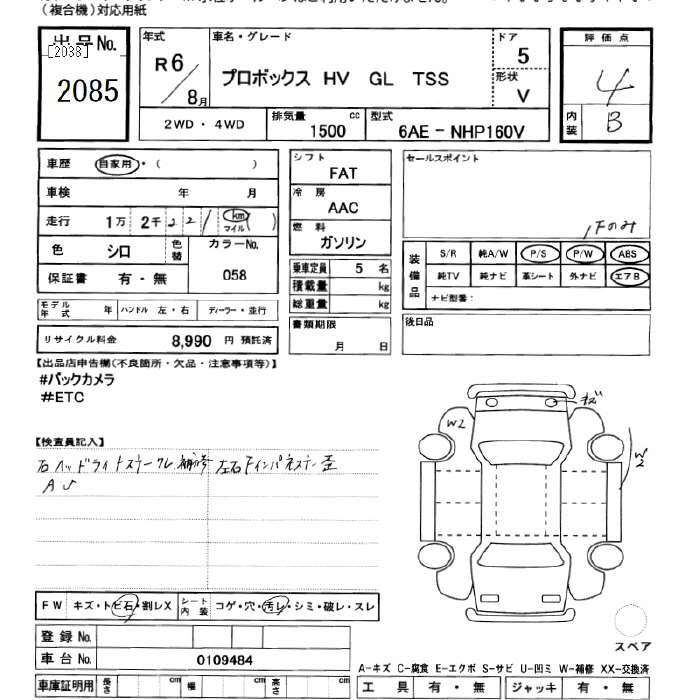 (複合機)対応用紙
出品No.
[2038]
2085
年式
R6
8月
車名・グレード
プロボックス HV GL TSS
ドア
5
形状
V
評価点
4
内装
B
2WD・4WD
排気量 cc
1500
型式
6AE-NHP160V
車歴 自家用・( )
車検 年 月
走行 1万 2千 2 2 1 km マイル ( )
色 シロ 色替 カラーNo.
保証書 有・無 058
シフト
FAT
冷房
AAC
燃料
ガソリン
乗車定員 5 名
積載量 kg
総重量 kg
セールスポイント
下のみ
装備品
S/R 純A/W P/S P/W ABS
純TV 純ナビ 革シート 外ナビ エアB
ナビ型番:
モデル年式 年 ハンドル 左・右 ディーラー・並行
リサイクル料金 8,990 円 預託済
書類期限
月 日
後日品
【出品店申告欄(不良箇所・欠品・注意事項等)】
#バックカメラ
#ETC
【検査員記入】
右ヘッドライトステークレ補修 左右
A U
キズ
W2
W2
FW キズ・トビ石・割レX シート内装 コゲ・穴・汚レ・シミ・破レ・スレ
登録No.
車台No. 0109484
スペア
A-キズ C-腐食 E-エクボ S-サビ U-凹ミ W-補修 XX-交換済
車庫証明用 長さ cm 幅 cm 高さ cm
工具 有・無 ジャッキ 有・無